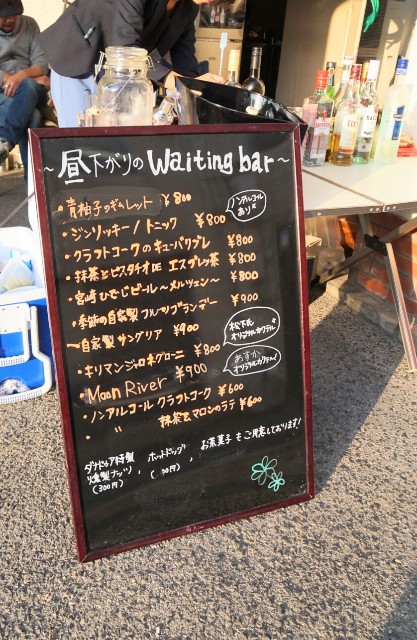 ~昼下がりの Waiting bar~
・青柚子のギムレット ¥800
ノンアルコールあり〼
・ジンリッキー/トニック ¥800
・クラフトコークのキューバリブレ ¥800
・抹茶とピスタチオDE エスプレッ茶 ¥800
・宮崎ひでじビール~メルツェン~ ¥800
・季節の自家製フルーツブランデー ¥900
自家製サングリア ¥900
・キリマンジャロネグローニ ¥800
松下氏オリジナルカクテル
・Moon River ¥900
あすかオリジナルカクテル
・ノンアルコール クラフトコーク ¥600
・ 〃 抹茶とマロンのラテ ¥600
特製燻製ナッツ(300円)、ホットドッグ、お茶菓子もご用意しております!